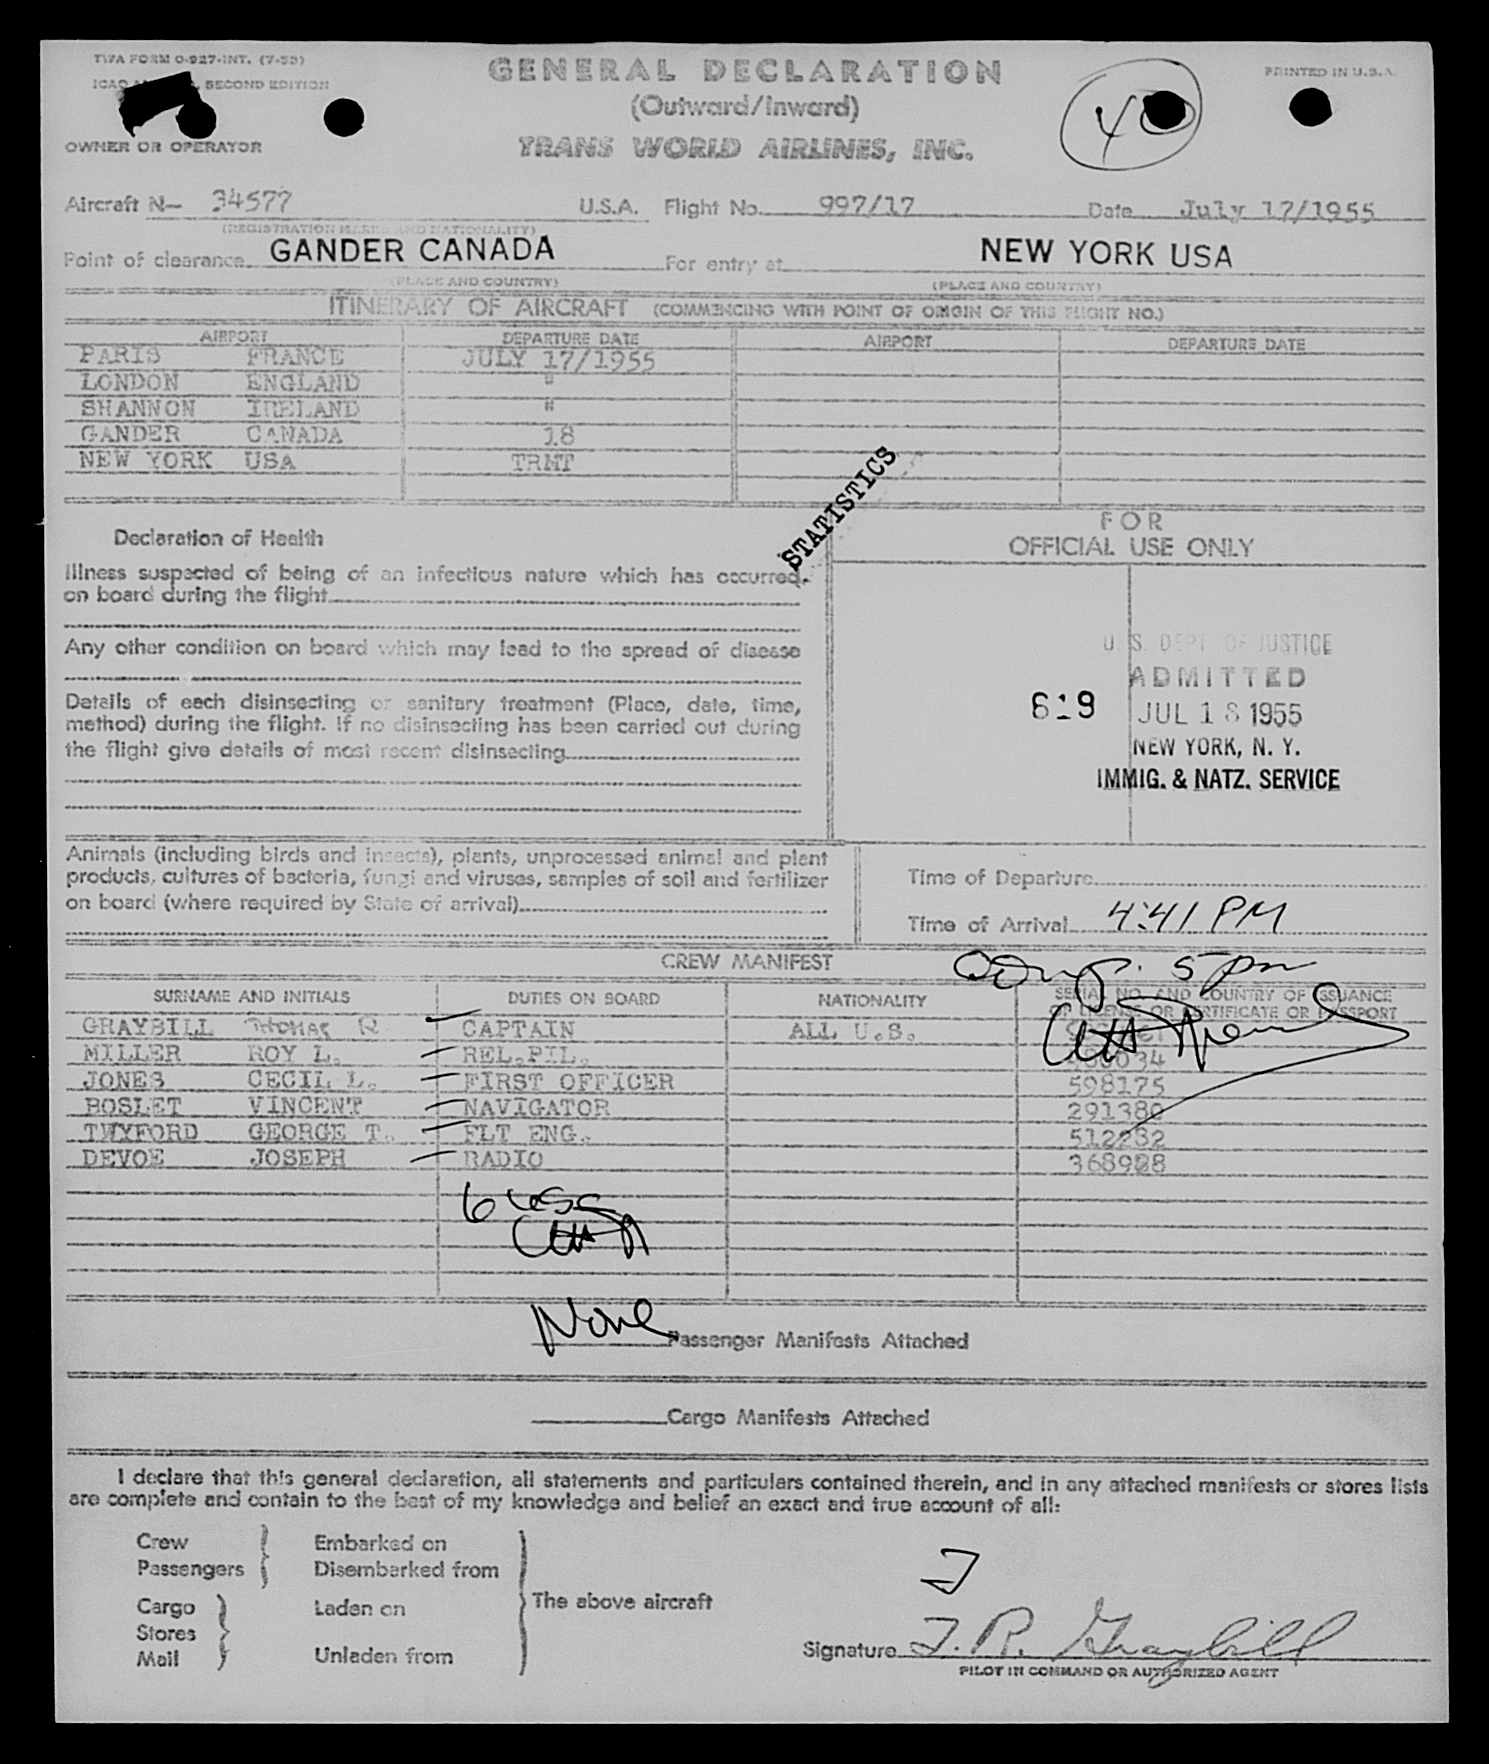 TWA FORM O-927-INT. (7-53)
ICAO SECOND EDITION
GENERAL DECLARATION
(Outward/Inward)
PRINTED IN U.S.A.
40
OWNER OR OPERATOR
TRANS WORLD AIRLINES, INC.
Aircraft N— 34577 U.S.A. Flight No. 997/17 Date July 17/1955
(REGISTRATION MARKS AND NATIONALITY)
Point of clearance GANDER CANADA For entry at NEW YORK USA
(PLACE AND COUNTRY) (PLACE AND COUNTRY)
ITINERARY OF AIRCRAFT (COMMENCING WITH POINT OF ORIGIN OF THIS FLIGHT NO.)
AIRPORT DEPARTURE DATE AIRPORT DEPARTURE DATE
PARIS FRANCE JULY 17/1955
LONDON ENGLAND "
SHANNON IRELAND "
GANDER CANADA 18
NEW YORK USA TRMT
STATISTICS
FOR
OFFICIAL USE ONLY
Declaration of Health
Illness suspected of being of an infectious nature which has occurred
on board during the flight
Any other condition on board which may lead to the spread of disease
Details of each disinsecting or sanitary treatment (Place, date, time,
method) during the flight. If no disinsecting has been carried out during
the flight give details of most recent disinsecting
U.S. DEPT OF JUSTICE
ADMITTED
619 JUL 18 1955
NEW YORK, N. Y.
IMMIG. & NATZ. SERVICE
Animals (including birds and insects), plants, unprocessed animal and plant
products, cultures of bacteria, fungi and viruses, samples of soil and fertilizer
on board (where required by State of arrival)
Time of Departure
Time of Arrival 4:41 PM
CREW MANIFEST
Comp. 5 pm
SURNAME AND INITIALS DUTIES ON BOARD NATIONALITY SERIAL NO. AND COUNTRY OF ISSUANCE
OF LICENSE OR CERTIFICATE OR PASSPORT
GRAYBILL THOMAS R CAPTAIN ALL U.S.
MILLER ROY L. REL.PIL.
JONES CECIL L. FIRST OFFICER 598175
BOSLET VINCENT NAVIGATOR 291380
TWYFORD GEORGE T. FLT ENG. 512232
DEVOE JOSEPH RADIO 368988
6 USC
None Passenger Manifests Attached
Cargo Manifests Attached
I declare that this general declaration, all statements and particulars contained therein, and in any attached manifests or stores lists
are complete and contain to the best of my knowledge and belief an exact and true account of all:
Crew
Passengers
Embarked on
Disembarked from
Cargo
Stores
Mail
Laden on
Unladen from
The above aircraft
Signature T. R. Graybill
PILOT IN COMMAND OR AUTHORIZED AGENT